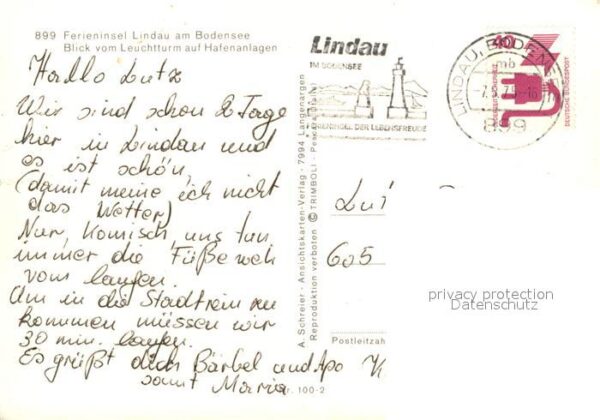 899 Ferieninsel Lindau am Bodensee
Blick vom Leuchtturm auf Hafenanlagen
Hallo Lutz
Wir sind schon 2 Tage
hier in Lindau und
es ist schön,
(damit meine ich nicht
das Wetter)
Nur, komisch, uns tun
immer die Füße weh
vom laufen.
Um in die Stadt rein zu
kommen müssen wir
30 min. laufen.
Es grüßt dich Bärbel und Apo
samt Maria
Nr. 100-2
A. Schreier - Ansichtskarten-Verlag - 7994 Langenargen
Reproduktion verboten © TRIMBOLI
Lindau
IM BODENSEE
FERIENINSEL DER LEBENSFREUDE
LINDAU, BODENS
mb
899
40
DEUTSCHE BUNDESPOST
605
privacy protection
Datenschutz
Postleitzah